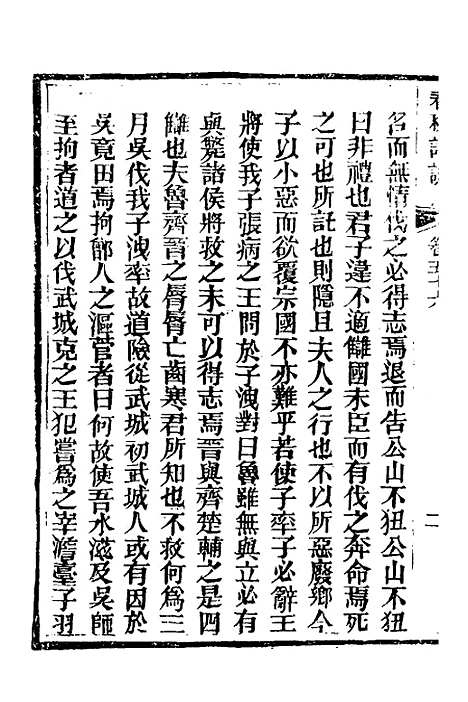 名而無情伐之必得志焉退而告公山不狃公山不狃
曰非禮也君子違不適讎國未臣而有伐之奔命焉死
之可也所託也則隱且夫人之行也不以所惡廢鄉今
子以小惡而欲覆宗國不亦難乎若使子率子必辭王
將使我子張病之王問於子洩對曰魯雖無與立必有
與斃諸侯將救之未可以得志焉晉與齊楚輔之是四
讎也夫魯齊晉之脣脣亡齒寒君所知也不救何為三
月吳伐我子洩率故道險從武城初武城人或有因於
吳竟田焉拘鄫人之漚菅者曰何故使吾水滋及吳師
至拘者道之以伐武城克之王犯嘗為之宰澹臺子羽
卷五十六